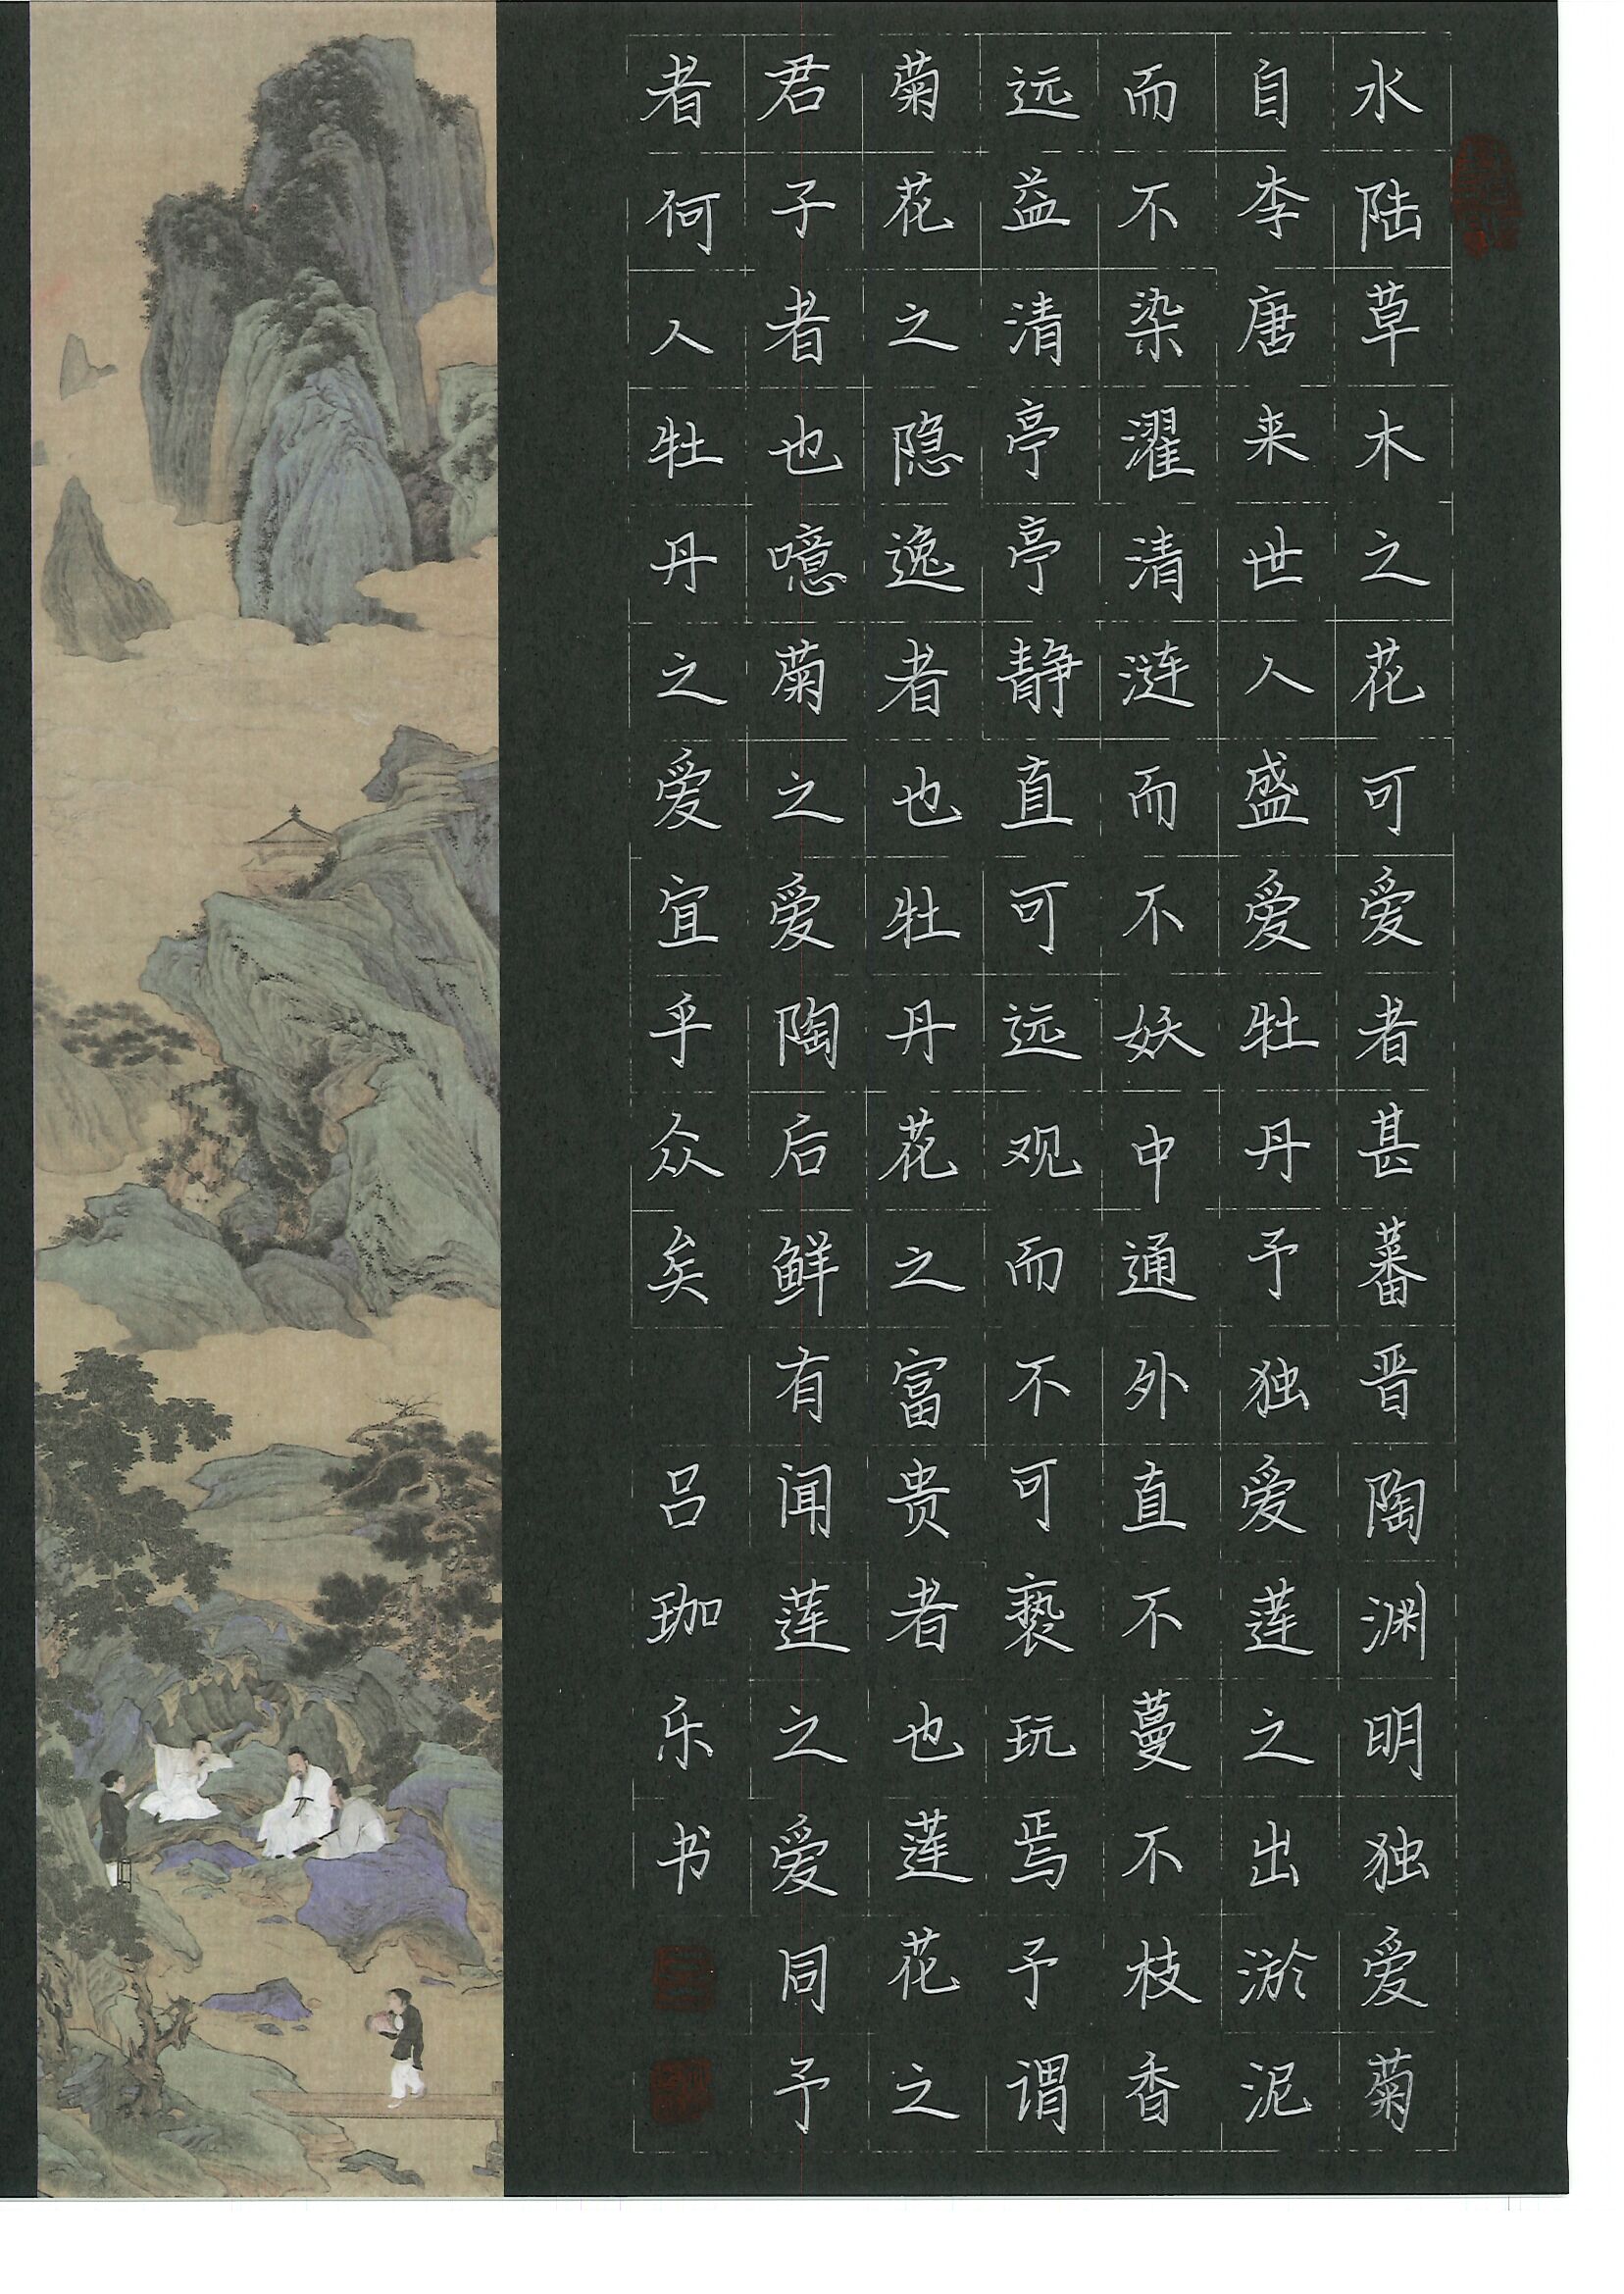 水陆草木之花可爱者甚蕃晋陶渊明独爱菊
自李唐来世人盛爱牡丹予独爱莲之出淤泥
而不染濯清涟而不妖中通外直不蔓不枝香
远益清亭亭静直可远观而不可亵玩焉予谓
菊花之隐逸者也牡丹花之富贵者也莲花之
君子者也噫菊之爱陶后鲜有闻莲之爱同予
者何人牡丹之爱宜乎众矣
吕珈乐书